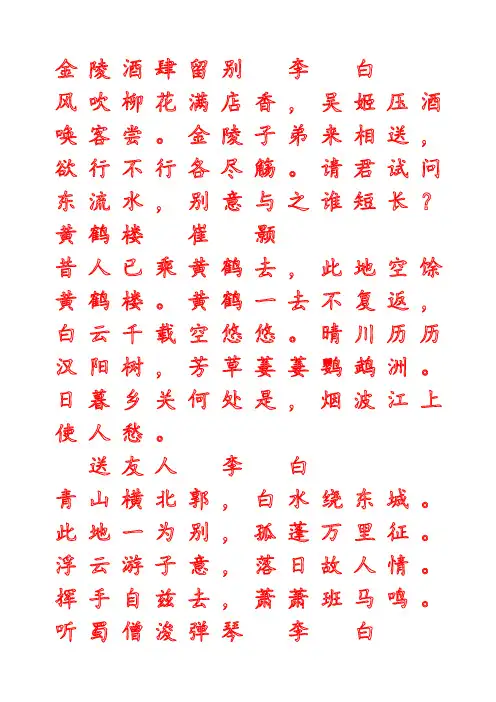 金陵酒肆留别 李 白
风吹柳花满店香，吴姬压酒
唤客尝。金陵子弟来相送，
欲行不行各尽觞。请君试问
东流水，别意与之谁短长？
黄鹤楼 崔 颢
昔人已乘黄鹤去，此地空馀
黄鹤楼。黄鹤一去不复返，
白云千载空悠悠。晴川历历
汉阳树，芳草萋萋鹦鹉洲。
日暮乡关何处是，烟波江上
使人愁。
送友人 李 白
青山横北郭，白水绕东城。
此地一为别，孤蓬万里征。
浮云游子意，落日故人情。
挥手自兹去，萧萧班马鸣。
听蜀僧浚弹琴 李 白